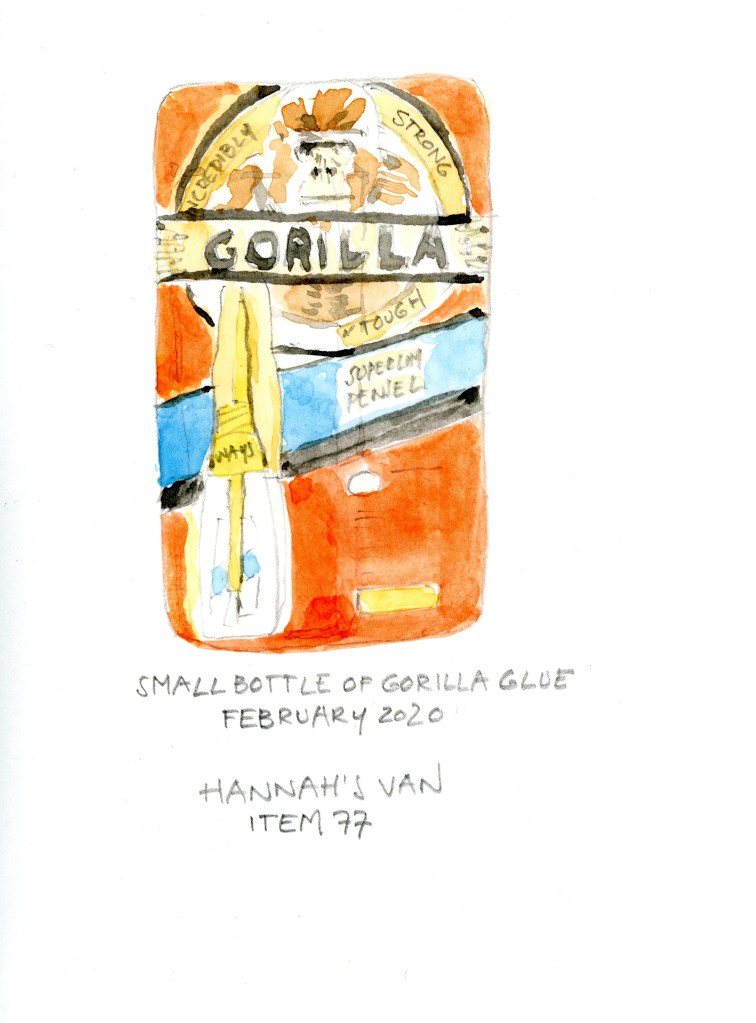 INCREDIBLY
STRONG
GORILLA
TOUGH
WAYS
SMALL BOTTLE OF GORILLA GLUE
FEBRUARY 2020
HANNAH'S VAN
ITEM 77